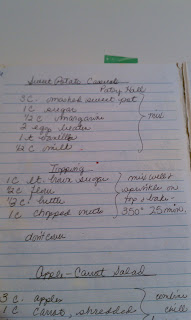 Sweet Potato Casserole
Patsy Hill
3 C. mashed sweet pot
1 C sugar
1/2 C margarine
2 egg beaten
1 t vanilla
1/2 C milk
mix
Topping
1 C lt. brown sugar
1/2 C flour
1/2 C. butter
1 C chopped nuts
mix well &
sprinkle on
top & bake
350° 25 mins.
don't cover
Apple-Carrot Salad
3 C. apples
1 C carrot, shredded
combine
chill